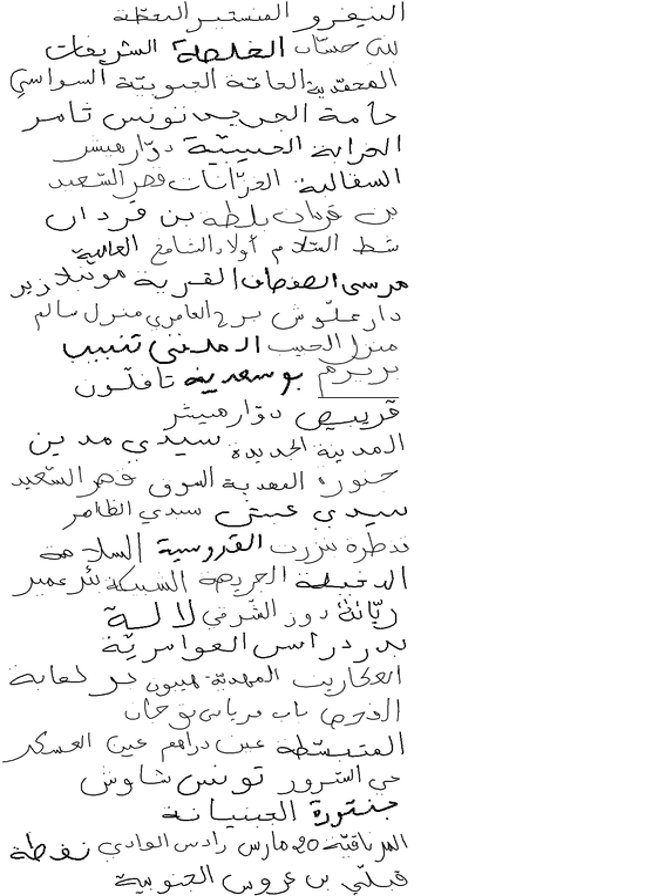 النيفرو المنستير النفطة
بني حسان الغلصة الشريفات
المحمدية الحامة الجنوبية السواسي
حامة الجريد تونس ثامر
الخرابة الحبيبية دوار هيشر
السفالية العزانات قصر السعيد
بن عربان بلطة بن قردان
شط السلام أولاد الشامخ العالية
مرسى القريبة مونبلازير
دار علوش برج العامري منزل سالم
منزل الحبيب المدنني تنبيب
بريرم بوسعدية تافلون
قريبص دوار هيشر
المدينة الجديدة سيدي مدين
جنورة المهدية السوق قصر السعيد
سيدي عيش سيدي الظاهر
قنطرة بنزرت القدوسية السلامة
الدخيلة الجريصة الشبيكة بئر عمير
ربانة دوز الشرقي لالة
بدر دراس العوامرية
العكاريت المهدية هيبون لعابة
الفحص باب
المتبسطة عين دراهم عين العسكر
حي السرور تونس شاوش
جنتورة الجبنيانة
المرناقية 20 مارس رادس الوادي نفطة
قبلي بن عروس الجنوبية